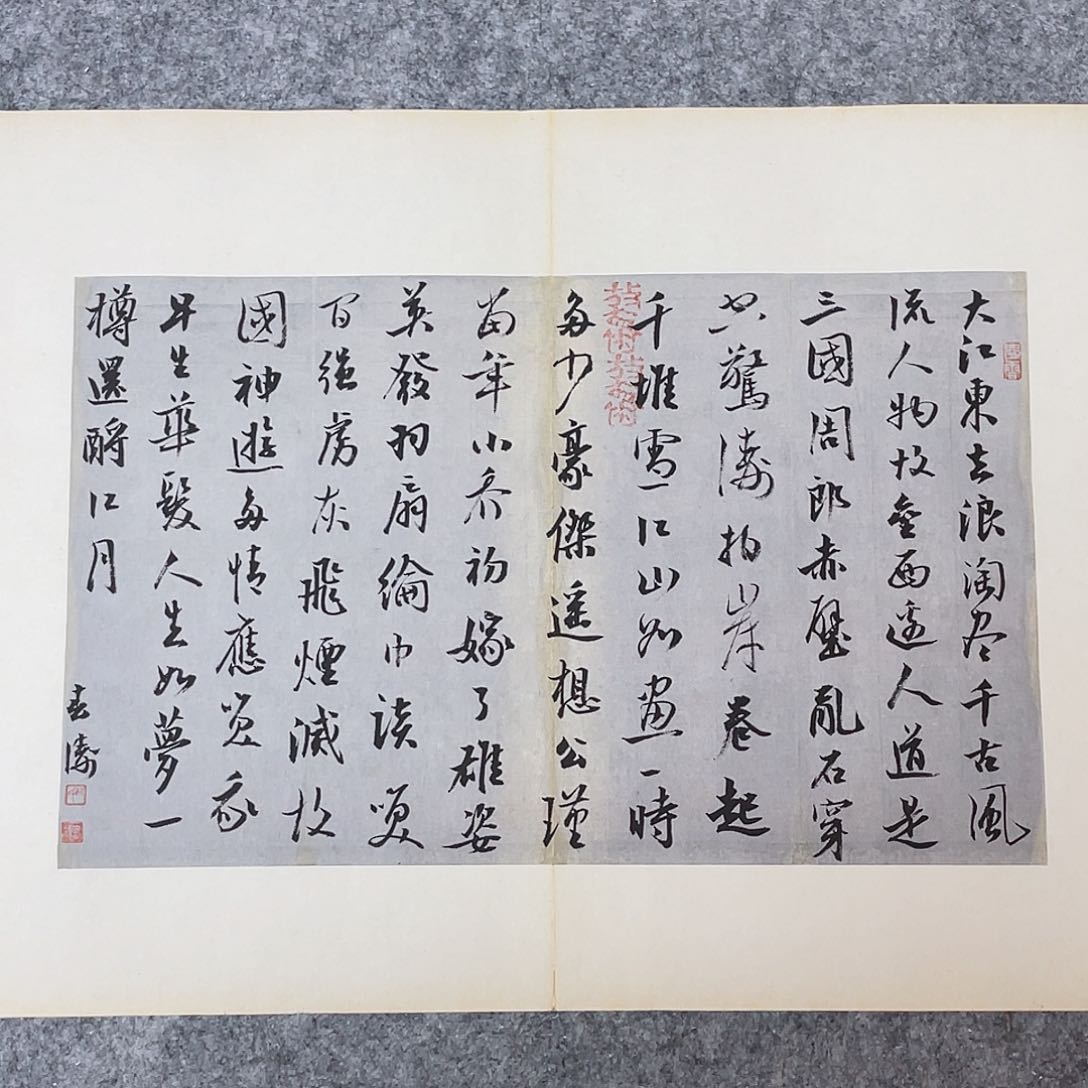 大江東去浪淘盡千古風
流人物故壘西邊人道是
三國周郎赤壁亂石穿
空驚濤拍岸卷起
千堆雪江山如畫一時
多少豪傑遙想公瑾
當年小喬初嫁了雄姿
英發羽扇綸巾談笑
間強虜灰飛煙滅故
國神遊多情應笑我
早生華髮人生如夢一
樽還酹江月